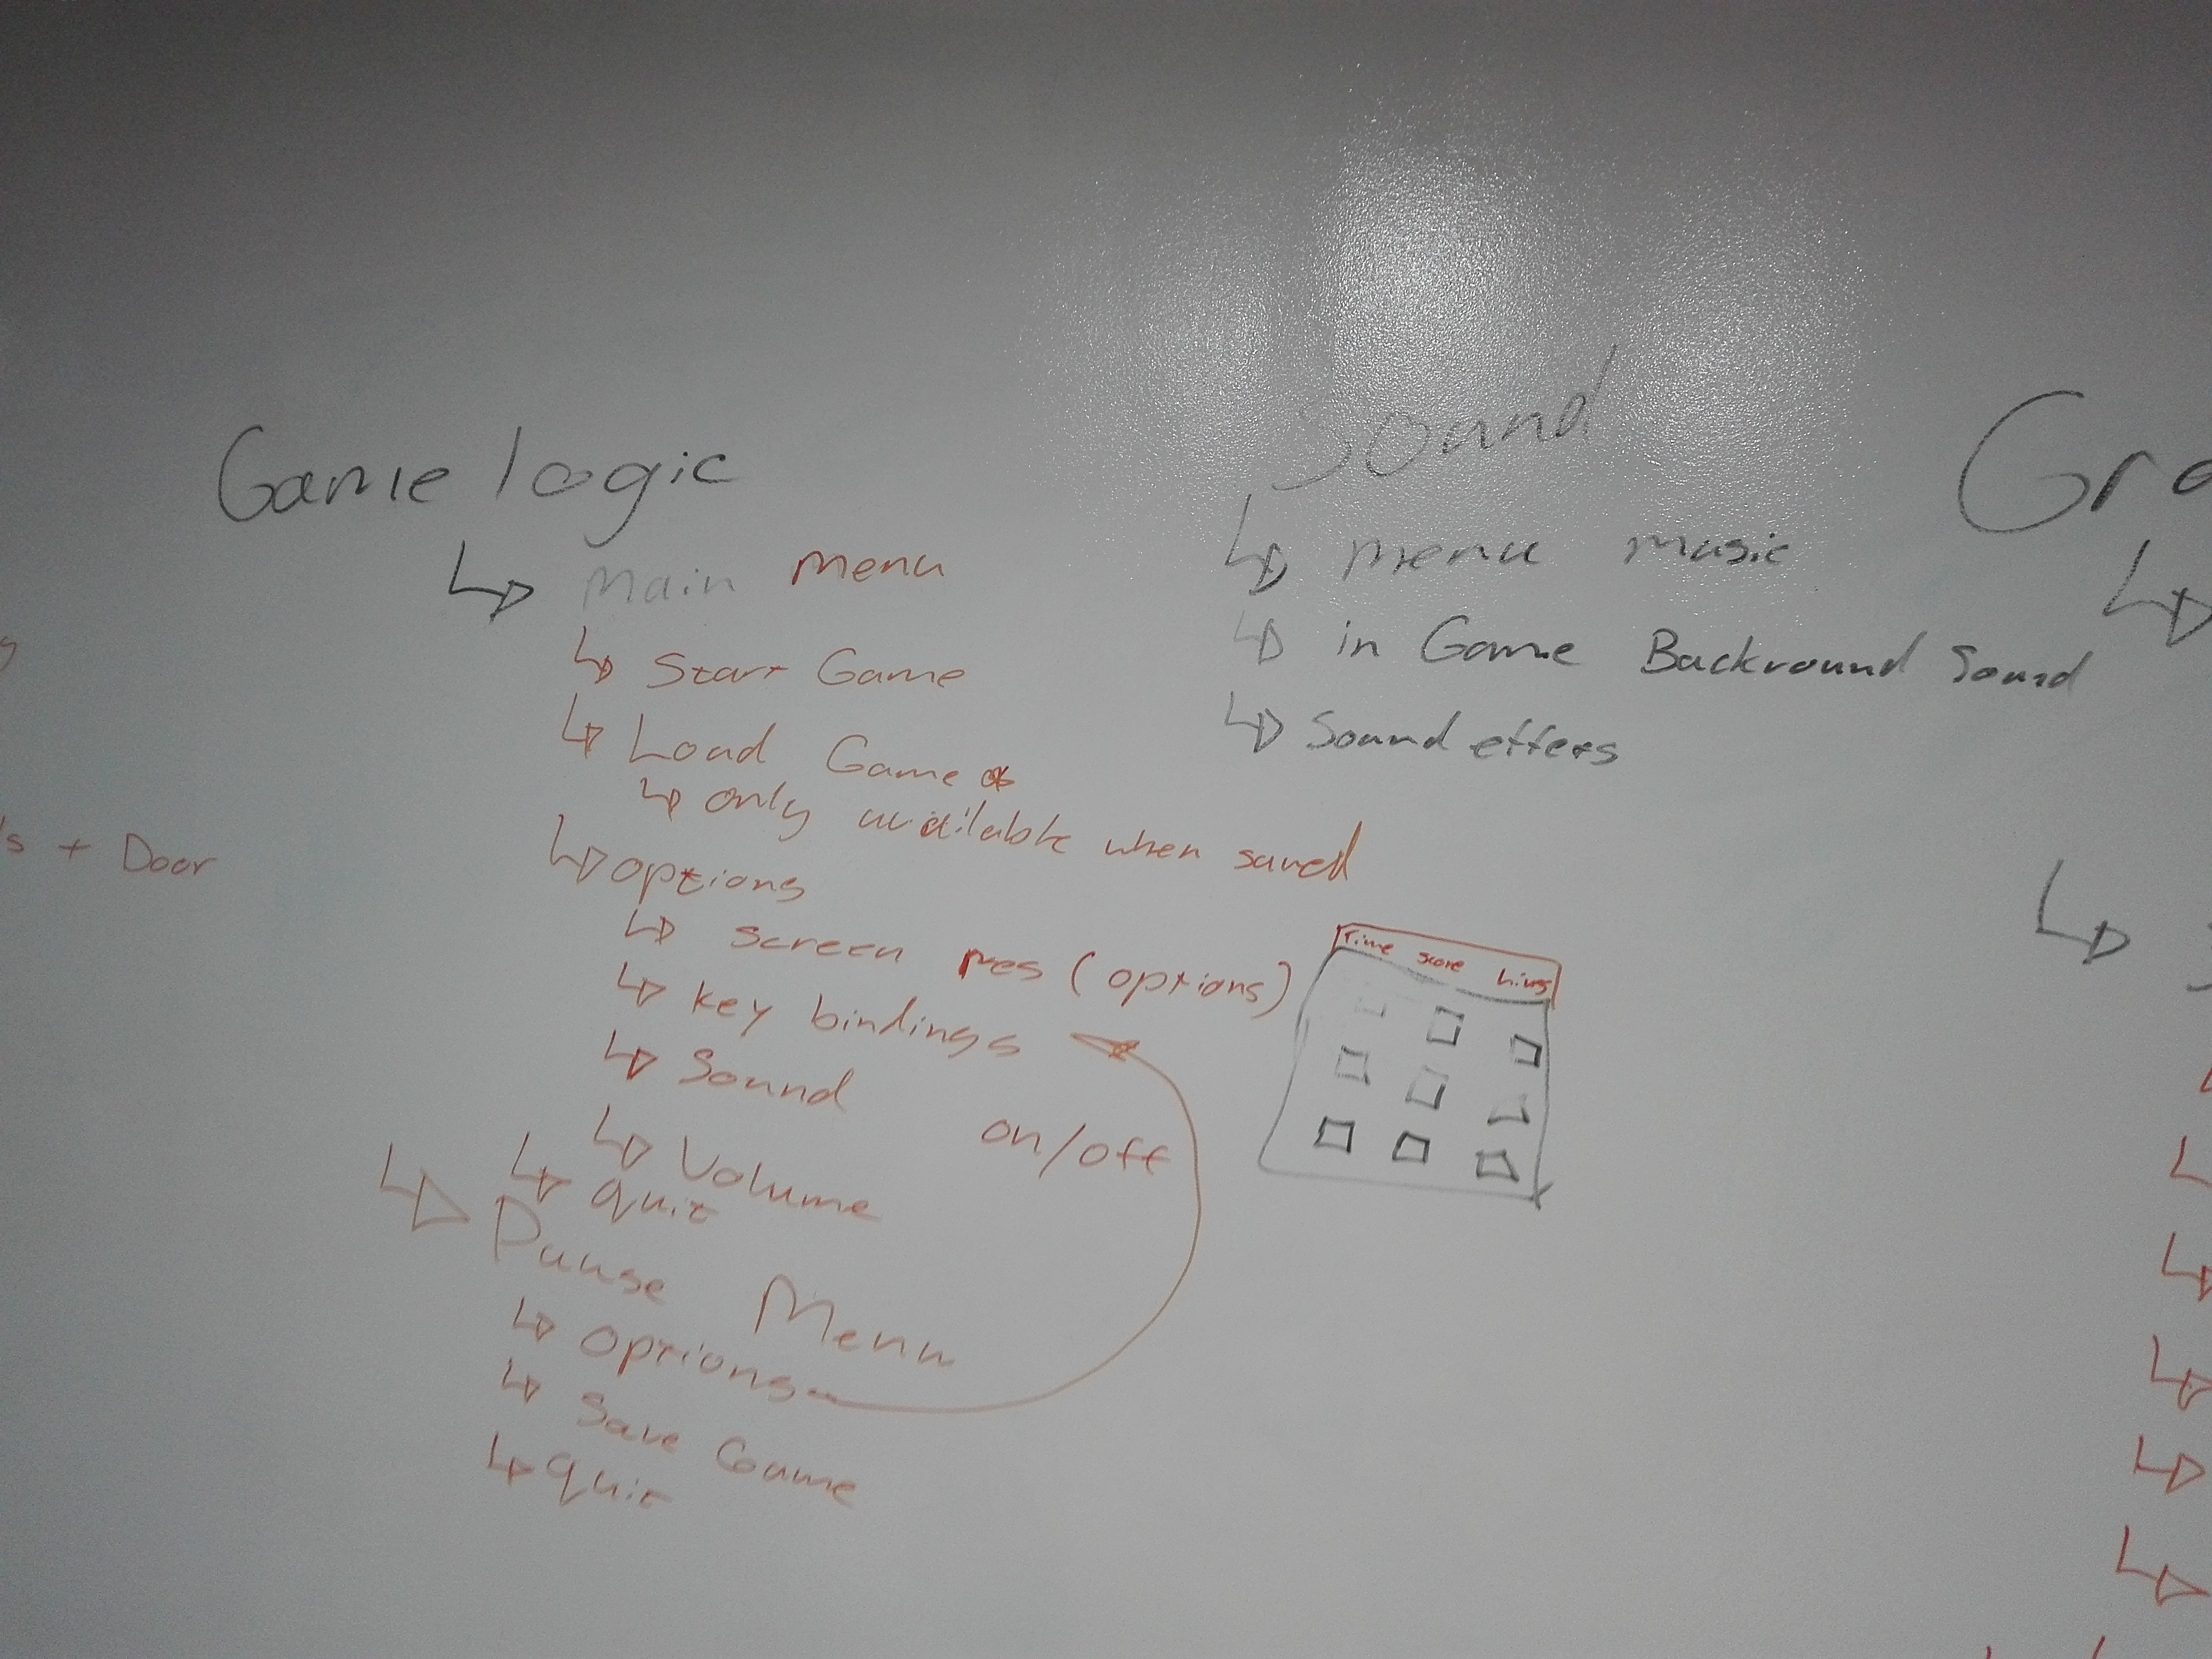 Game logic
Main menu
Start Game
Load Game *
only available when saved
options
screen res (options)
key bindings
Sound
on/off
Volume
quit
Pause Menu
options
Save Game
quit
Sound
menu music
in Game Backround Sound
Sound effets
Time score Lives
Gra
's + Door